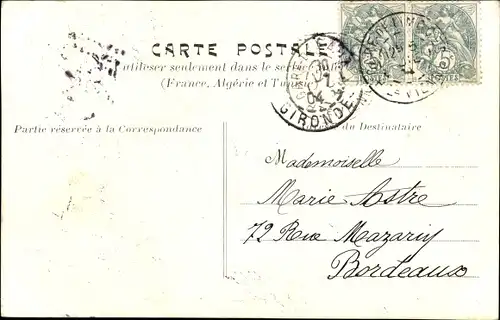 CARTE POSTALE
utiliser seulement dans le service
(France, Algérie et Tunis
Partie réservée à la Correspondance
du Destinataire
GIRONDE
04
5
Mademoiselle
Marie Astre
72 Rue Mazarin
Bordeaux